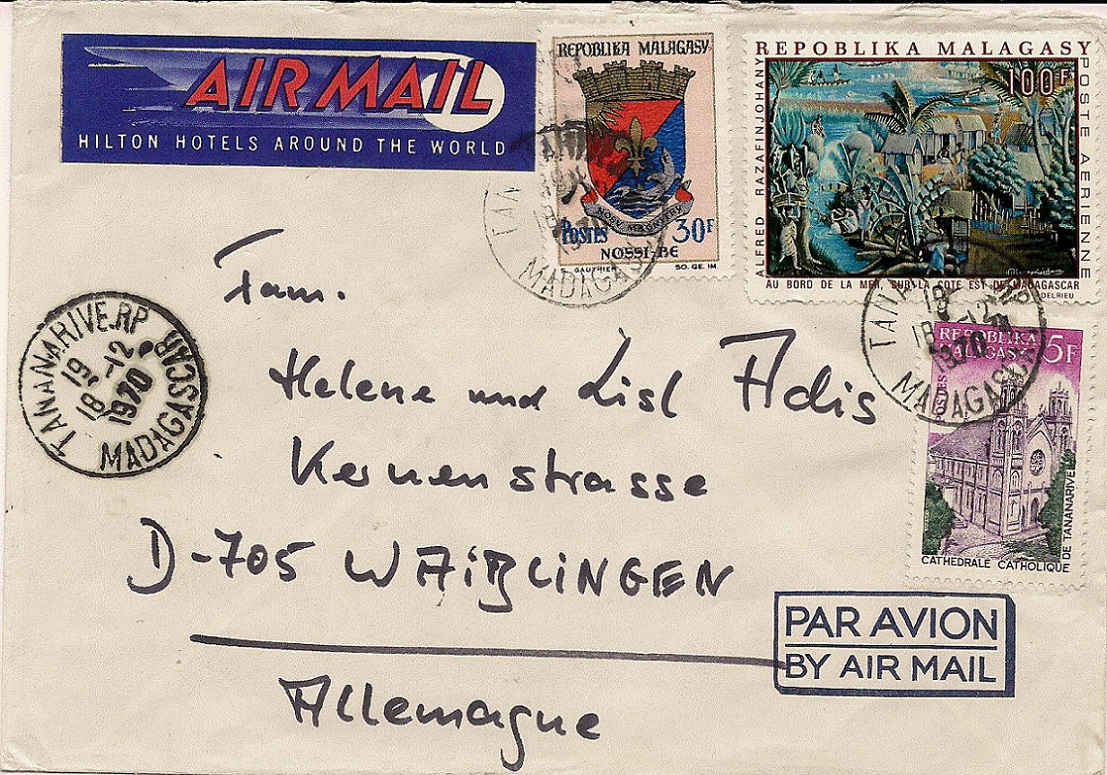 AIR MAIL
HILTON HOTELS AROUND THE WORLD
REPOBLIKA MALAGASY
NOSSI-BE
POSTES 30F
GAUTHIER SO. GE. IM
REPOBLIKA MALAGASY
100F
POSTE AERIENNE
ALFRED RAZAFINJOHANY
AU BORD DE LA MER, SUR LA COTE EST DE MADAGASCAR
DELRIEU
REPOBLIKA
MALAGASY 5F
POSTES
CATHEDRALE CATHOLIQUE
DE TANANARIVE
TANANARIVE.RP
19H
18-12
1970
MADAGASCAR
MADAGASCAR
18-12
1970
MADAGASCAR
Fam.
Helene und Lisl Adis
Kernenstrasse
D-705 WAIBLINGEN
Allemagne
PAR AVION
BY AIR MAIL